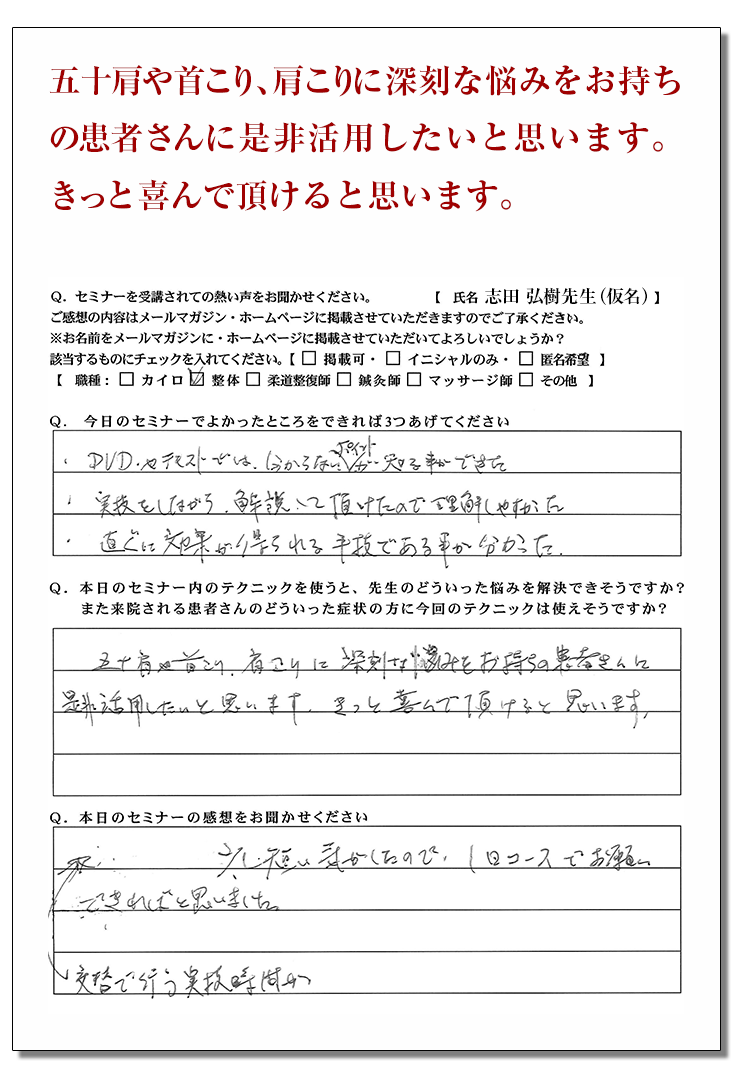 五十肩や首こり、肩こりに深刻な悩みをお持ち
の患者さんに是非活用したいと思います。
きっと喜んで頂けると思います。
Q．セミナーを受講されての熱い声をお聞かせください。 【 氏名 志田 弘樹先生（仮名）】
ご感想の内容はメールマガジン・ホームページに掲載させていただきますのでご了承ください。
※お名前をメールマガジンに・ホームページに掲載させていただいてよろしいでしょうか？
該当するものにチェックを入れてください。【 □ 掲載可・ □ イニシャルのみ・ □ 匿名希望 】
【 職種： □ カイロ ☑ 整体 □ 柔道整復師 □ 鍼灸師 □ マッサージ師 □ その他 】
Q． 今日のセミナーでよかったところをできれば3つあげてください
・ DVDやテキストでは、分からないポイントが知る事ができた
・ 実技をしながら、解説して頂けたので理解しやすかった
・ 直ぐに効果が得られる手技である事が分かった．
Q．本日のセミナー内のテクニックを使うと、先生のどういった悩みを解決できそうですか？
また来院される患者さんのどういった症状の方に今回のテクニックは使えそうですか？
五十肩や首こり、肩こりに深刻な悩みをお持ちの患者さんに
是非活用したいと思います．きっと喜んで頂けると思います。
Q．本日のセミナーの感想をお聞かせください
少し短い気がしたので、1日コースでお願い
できればと思いました。
交替で行う実技時間が